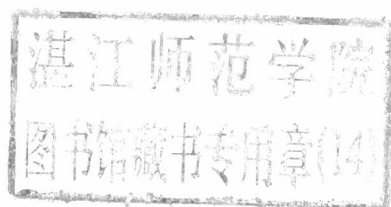 湛江师范学院
图书馆藏书专用章(14)